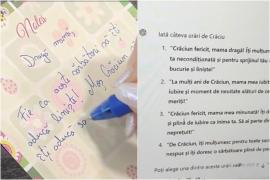 Notes
Dragă mama,
Fie ca aceste sărbători să-ți
aducă liniște! Moș Crăciun
Îți aduca sa
Iată câteva urări de Crăciu
1. "Crăciun fericit, mama dragă! Îți mulțu
ta necondiționată și pentru sprijinul tău
bucurie și liniște!"
2. "La mulți ani de Crăciun, mama mea iubit
și moment de
meriți!"
3. "Crăciun fericit, mama mea minunată!
și plină de iubire ca inima ta. Să ai parte de
neprețuit!"
4. "De Crăciun, îți mulțumesc pentru toate
nespus și îți doresc o sărbătoare plină de
Poți alege una dintre aceste urări sau